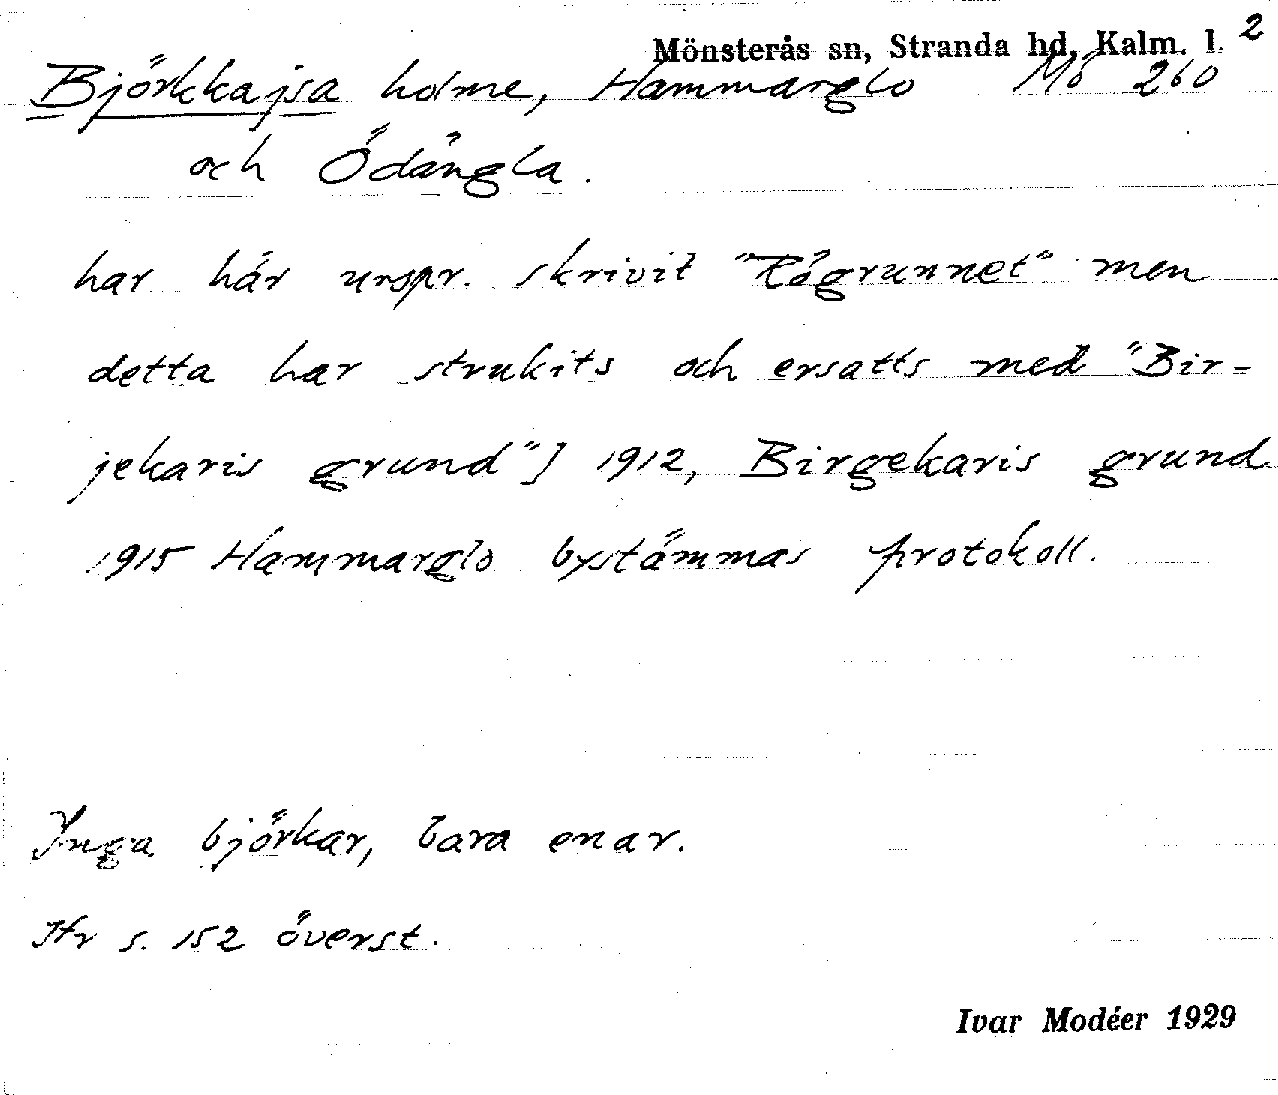 Mönsterås sn, Stranda hd, Kalm. l. 2
Björkkajsa holme, Hammarglo Mö 260
och Ödängla.
har här urspr. skrivit "Rögrunnet" men
detta har strukits och ersatts med "Bir-
jekaris grund"] 1912, Birgekaris grund
1915 Hammarglo bystämmas protokoll.
Inga björkar, bara enar.
Str s. 152 överst.
Ivar Modéer 1929